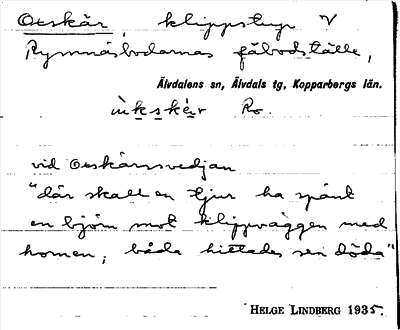 Oxskär, klippstup V
Rymnäsbodarnas fäbodställe,
Älvdalens sn, Älvdals tg, Kopparbergs län.
ùkskèr Ro.
vid Oxskärsvedjan
"där skall en tjur ha spänt
en björn mot klippväggen med
hornen; båda hittades sen döda"
HELGE LINDBERG 1935.